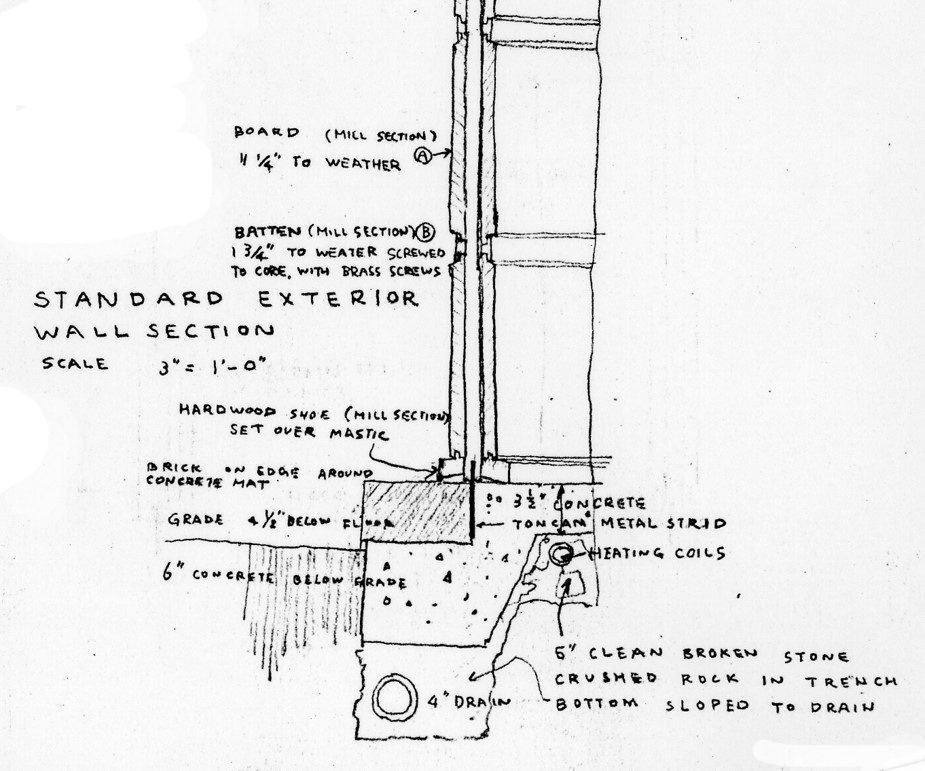 BOARD (MILL SECTION)
11 1/4" TO WEATHER Ⓐ
BATTEN (MILL SECTION) Ⓑ
1 3/4" TO WEATER SCREWED
TO CORE, WITH BRASS SCREWS
STANDARD EXTERIOR
WALL SECTION
SCALE 3" = 1'-0"
HARDWOOD SHOE (MILL SECTION)
SET OVER MASTIC
BRICK ON EDGE AROUND
CONCRETE MAT
3 1/2" CONCRETE
GRADE 4 1/2" BELOW FLOOR
TONCAN METAL STRIP
HEATING COILS
6" CONCRETE BELOW GRADE
5" CLEAN BROKEN STONE
CRUSHED ROCK IN TRENCH
BOTTOM SLOPED TO DRAIN
4" DRAIN